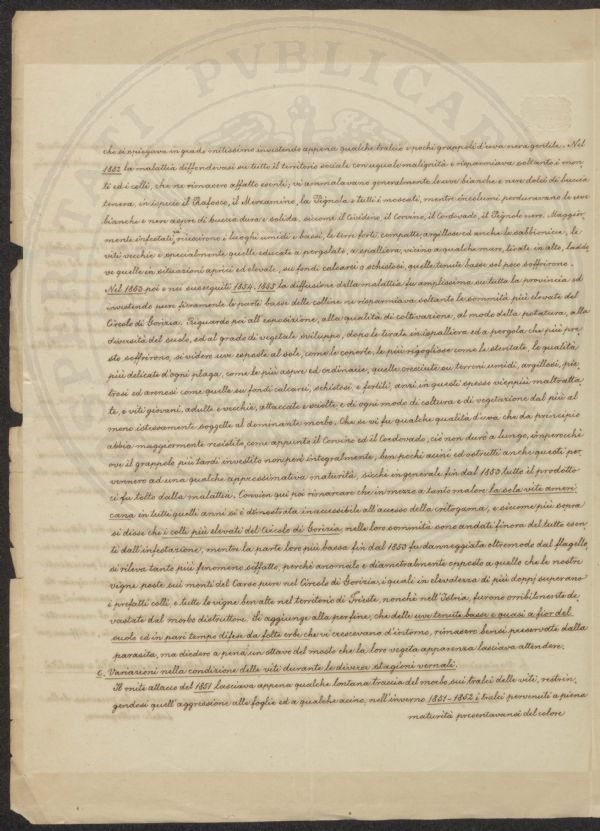 che si spiegava in grado mitissimo investendo appena qualche tralcio e pochi grappoli d'uva nera gentile. Nel
1852 la malattia diffondevasi su tutto il territorio sociale con uguale malignità e risparmiava soltanto i mon-
ti ed i colli, che ne rimasero affatto esenti; vi ammalavano generalmente le uve bianche e nere dolci di buccia
tenera, in ispecie il Rafosco, il Merzamino, la Pignola e tutti i moscati, mentre incolumi perduravano le uve
bianche e nere aspre di buccia dura e solida, siccome il Cividino, il Corvino, il Cordovado, il Pignolo nero. Maggior-
mente infestati riuscirono i luoghi umidi e bassi, le terre forti, compatte, argillose ed anche le sabbionicie, le
viti vecchie e specialmente quelle educate a pergolato, a spalliera, vicino a qualche muro, tirate in alto, laddo-
ve quelle in situazioni apriche ed elevate, su fondi calcarei o schistosi, quelle tenute basse sol poco soffrirono.
Nel 1853 poi e nei susseguiti 1854-1855 la diffusione della malattia fu amplissima su tutta la provincia ed
investendo pure fieramente le parti basse delle colline ne risparmiava soltanto le sommità più elevate del
Circolo di Gorizia. Riguardo poi all'esposizione, alla qualità di coltivazione, al modo della potatura, alla
diversità del suolo, ed al grado di vegetale sviluppo, dopo le tirate in ispalliera ed a pergola che più pre-
sto soffrirono, si videro uve esposte al sole, come le coperte, le più rigogliose come le stentate, le qualità
più delicate d'ogni plaga, come le più aspre ed ordinarie, quelle cresciute su terreni umidi, argillosi, pie-
trosi ed arenosi come quelle su fondi calcarei, schistosi, e fertili, anzi in questi spesse vieppiù maltratta-
te, e viti giovani, adulte e vecchie, attaccate e sciolte, e di ogni modo di coltura e di vegetazione dal più al
meno istessamente soggette al dominante morbo. Che se vi fu qualche qualità d'uva che da principio
abbia maggiormente resistito, come appunto il Corvino ed il Cordovado, ciò non durò a lungo, imperocchè
ove il grappolo più tardi investito non perì integralmente, ben pochi acini ed ostrutti anche questi per-
vennero ad una qualche approssimativa maturità, sicchè in generale fin dal 1853 tutto il prodotto
ci fu tolto dalla malattia. Convien qui poi rimarcare che in mezzo a tanto malore la sola vite ameri-
cana in tutti quelli anni si è dimostrata inaccessibile all'accesso della critogama, e siccome più sopra
si disse che i colli più elevati del Circolo di Gorizia, nelle loro sommità sono andati finora del tutto esen-
ti dall'infestazione, mentre la parte loro più bassa fin dal 1853 fu danneggiata oltremodo dal flagello,
si rileva tanto più fenomeno siffatto, perchè anomalo e diametralmente opposto a quello che le nostre
vigne poste sui monti del Carso pure nel Circolo di Gorizia, i quali in elevatezza di più doppj superano
i prefatti colli, e tutte le vigne ben alte nel territorio di Trieste, nonchè nell'Istria, furono orribilmente de-
vastate dal morbo distruttore. Si aggiunge alla perfine, che delle uve tenute basse e quasi a fior del
suolo ed in pari tempo difese da folte erbe che vi crescevano d'intorno, rimasero bensì preservate dalla
parasita, ma diedero a pena un ottavo del mosto che la loro vegeta apparenza lasciava attendere.
c. Variazioni nella condizione delle viti durante le diverse stagioni vernali.
Il mite attacco del 1851 lasciava appena qualche lontana traccia del morbo sui tralci delle viti, restrin-
gendosi quell'aggressione alle foglie ed a qualche acino, nell'inverno 1851-1852 i tralci pervenuti a piena
maturità presentavansi del colore